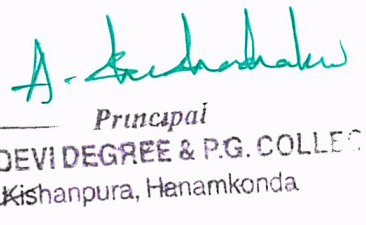 A.
Principal
DEVI DEGREE & P.G. COLLEG
Kishanpura, Hanamkonda